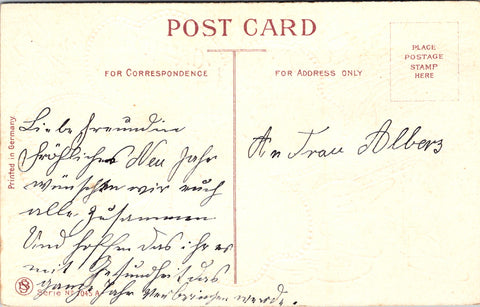 POST CARD
FOR CORRESPONDENCE
FOR ADDRESS ONLY
PLACE
POSTAGE
STAMP
HERE
Printed in Germany
Liebe freundin
fröhliches Neu Jahr
wünschen wir euch
alle zusammen
Und hoffen das ihr es
mit Gesundheit das
ganze Jahr verbringen werde.
An Frau Albers
Serie No 1045 A